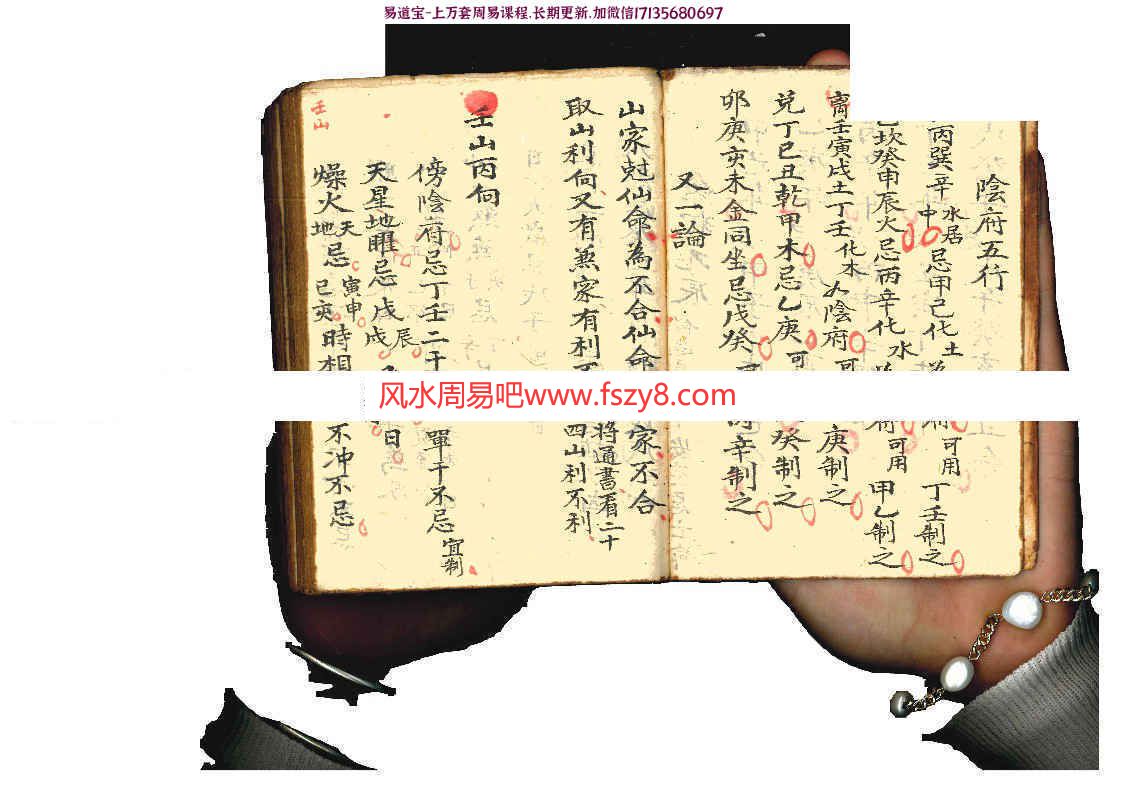 易道宝-上万套周易课程.长期更新.加微信17135680697
陰府五行
丙巽辛水居中忌甲己化土
可用丁壬制之
坎癸申辰火忌丙辛化水
可用甲乙制之
离壬寅戌土丁壬化木
陰府可
庚制之
兌丁巳丑乾甲木忌乙庚可
癸制之
卯庚亥未金同坐忌戊癸
辛制之
又一論
山家尅仙命為不合仙命
家不合
取山利向又有兼家有利
將通書看二十四山利不利
壬山丙向
傍陰府忌丁壬二干
單干不忌宜制
天星地曜忌戌辰
日
燥火天地忌寅申巳亥時相
不冲不忌
壬山
风水周易吧www.fszy8.com